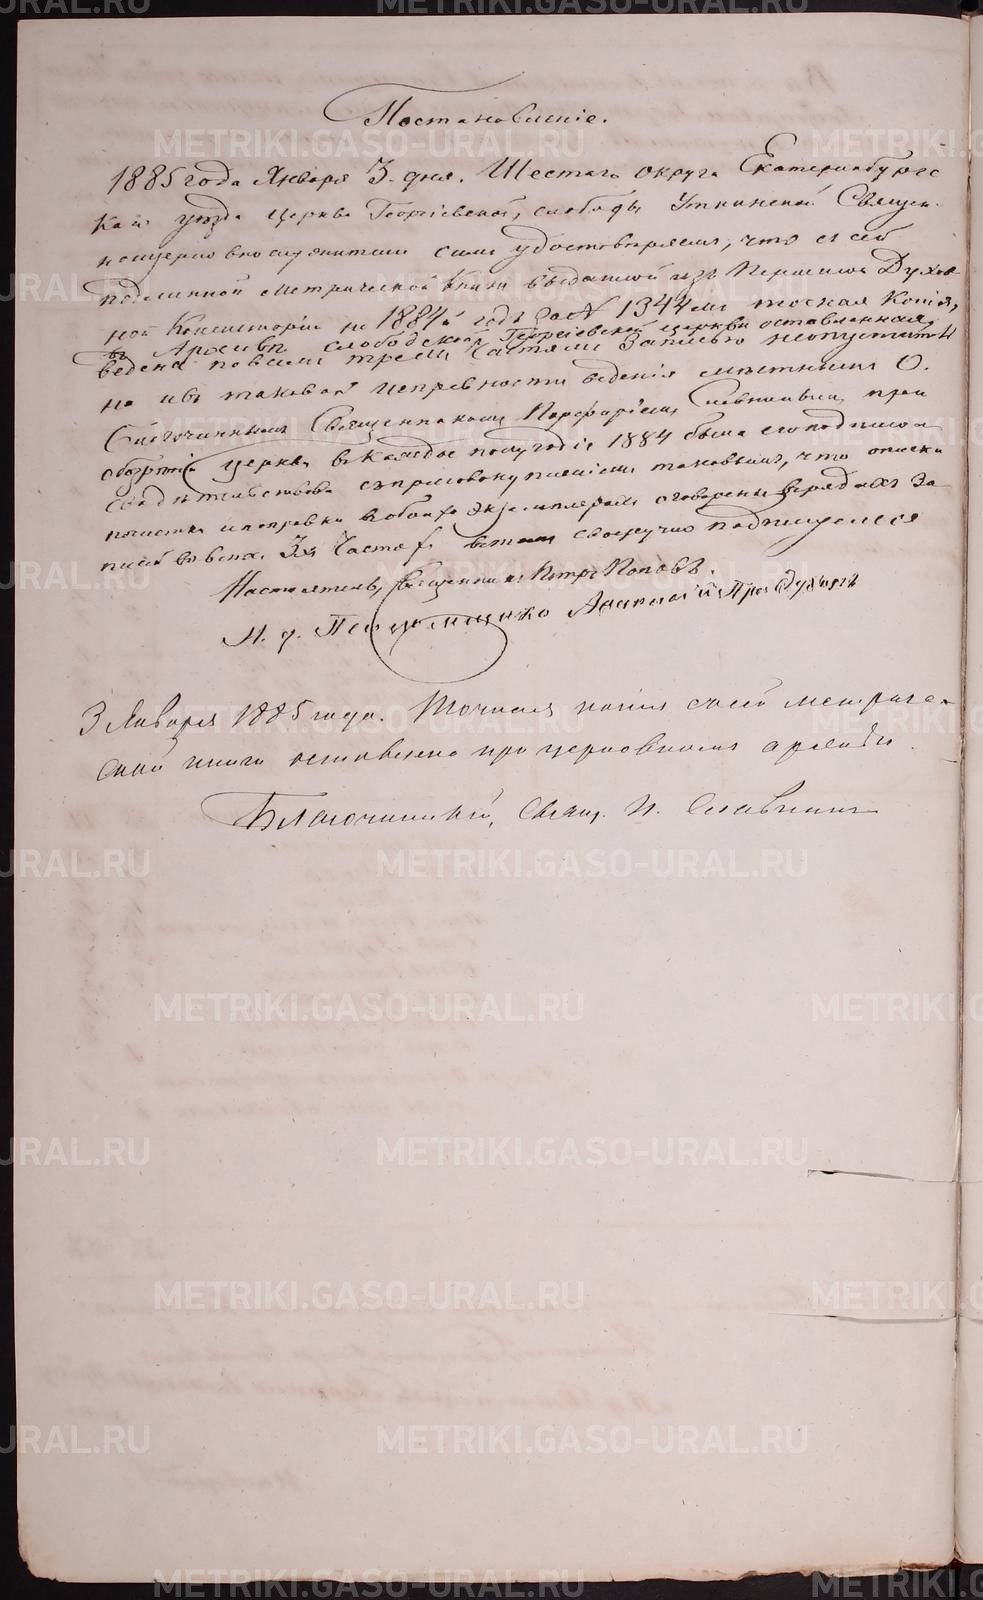 Постановленіе.
1885 года Января 3. дня. Шестаго округа Екатеринбургс
каго уѣзда церкви Георгіевской, слободы Уткинской Священ-
ноцерковнослужители симъ удостовѣряемъ, что съ сей
подлинной метрической книги выданной изъ Пермской Духов
ной Консисторіи на 1884й годъ за № 1344мъ точная копія,
въ Архивѣ слободской Георгіевской церкви оставленная,
ведена по всѣмъ тремъ частямъ записью неопустит
но и въ таковой исправности веденія мѣстнымъ О.
Благочиннымъ Священникомъ Славнинымъ при
обозрѣніи церкви въ каждое полугодіе 1884 была его подписью
свидѣтельствова съ присовокупленіемъ таковымъ, что описки
почистки и поправки въ обоихъ экземплярахъ оговорены въ рядахъ за
писей во всѣхъ 3хъ частяхъ въ томъ своеручно подпишемся
Настоятель, Священникъ Петръ Поповъ.
И. д. Псаломщика
3 Января 1885 года. Точная копія съ сей метриче-
ской книги оставлена при церковномъ архивѣ.
Благочинный, Свящ. П. Славнинъ
METRIKI.GASO-URAL.RU